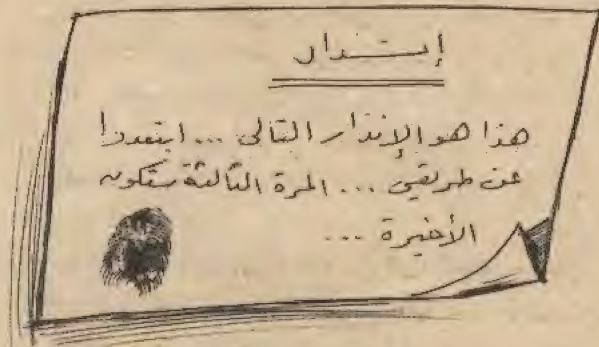 إنذار
هذا هو الإنذار الثاني ... ابتعدوا
عن طريقي ... المرة الثالثة ستكون
الأخيرة ...